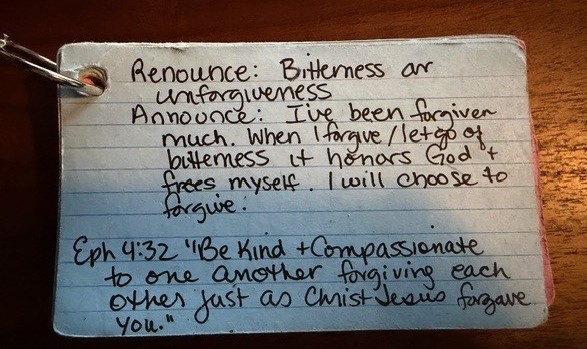 Renounce: Bitterness or
unforgiveness
Announce: I've been forgiven
much. When I forgive/let go of
bitterness it honors God +
frees myself. I will choose to
forgive.
Eph 4:32 "Be Kind + Compassionate
to one another forgiving each
other just as Christ Jesus forgave
you."